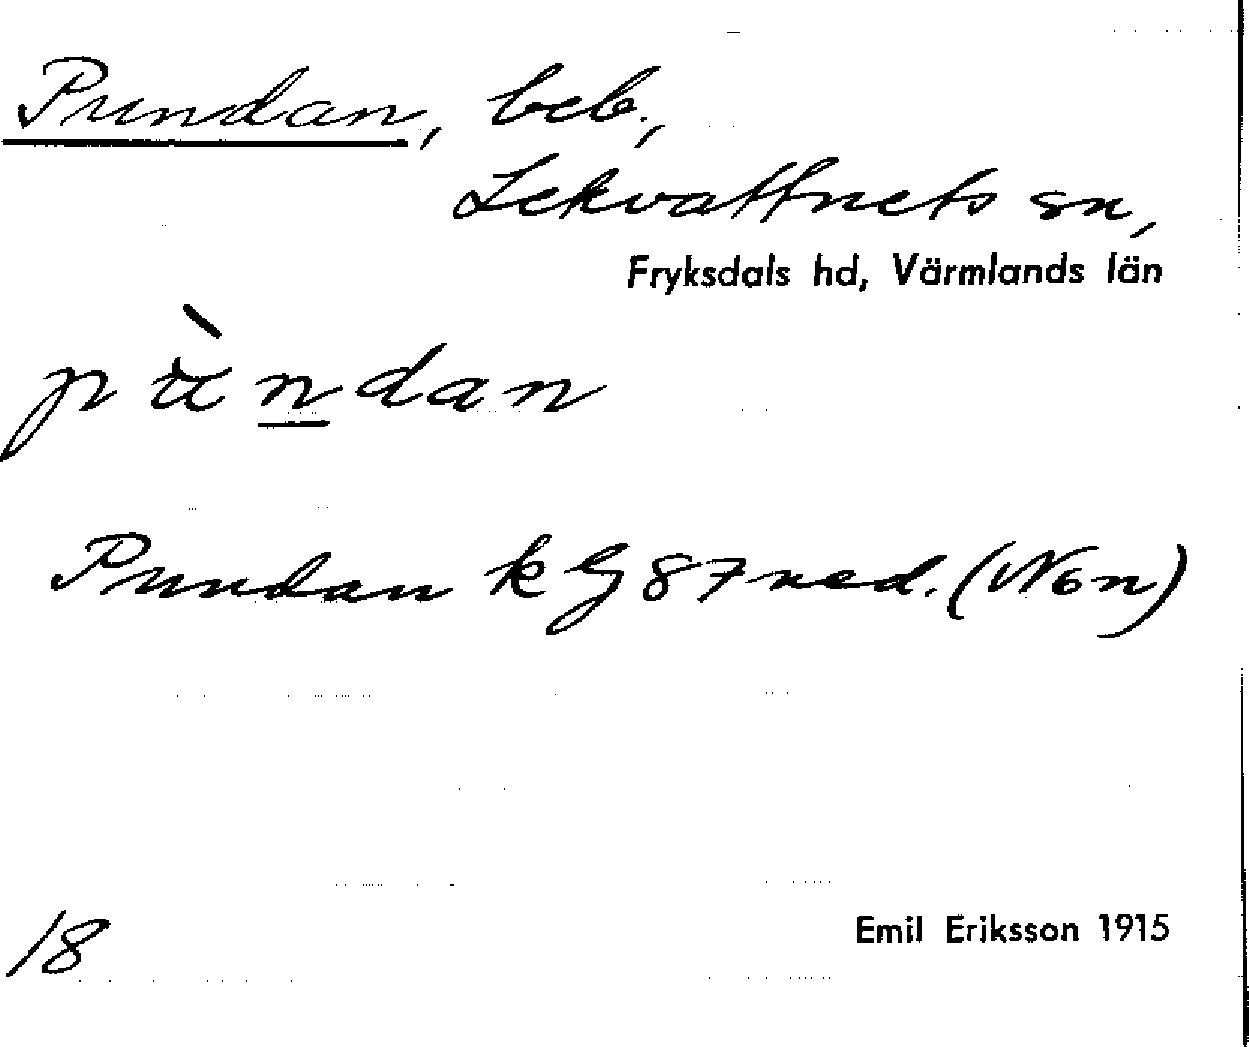 Pundan, beb.,
Lekvattnets sn,
Fryksdals hd, Värmlands län
pùndan
Pundan k G 87 ned. (NÖn)
18
Emil Eriksson 1915